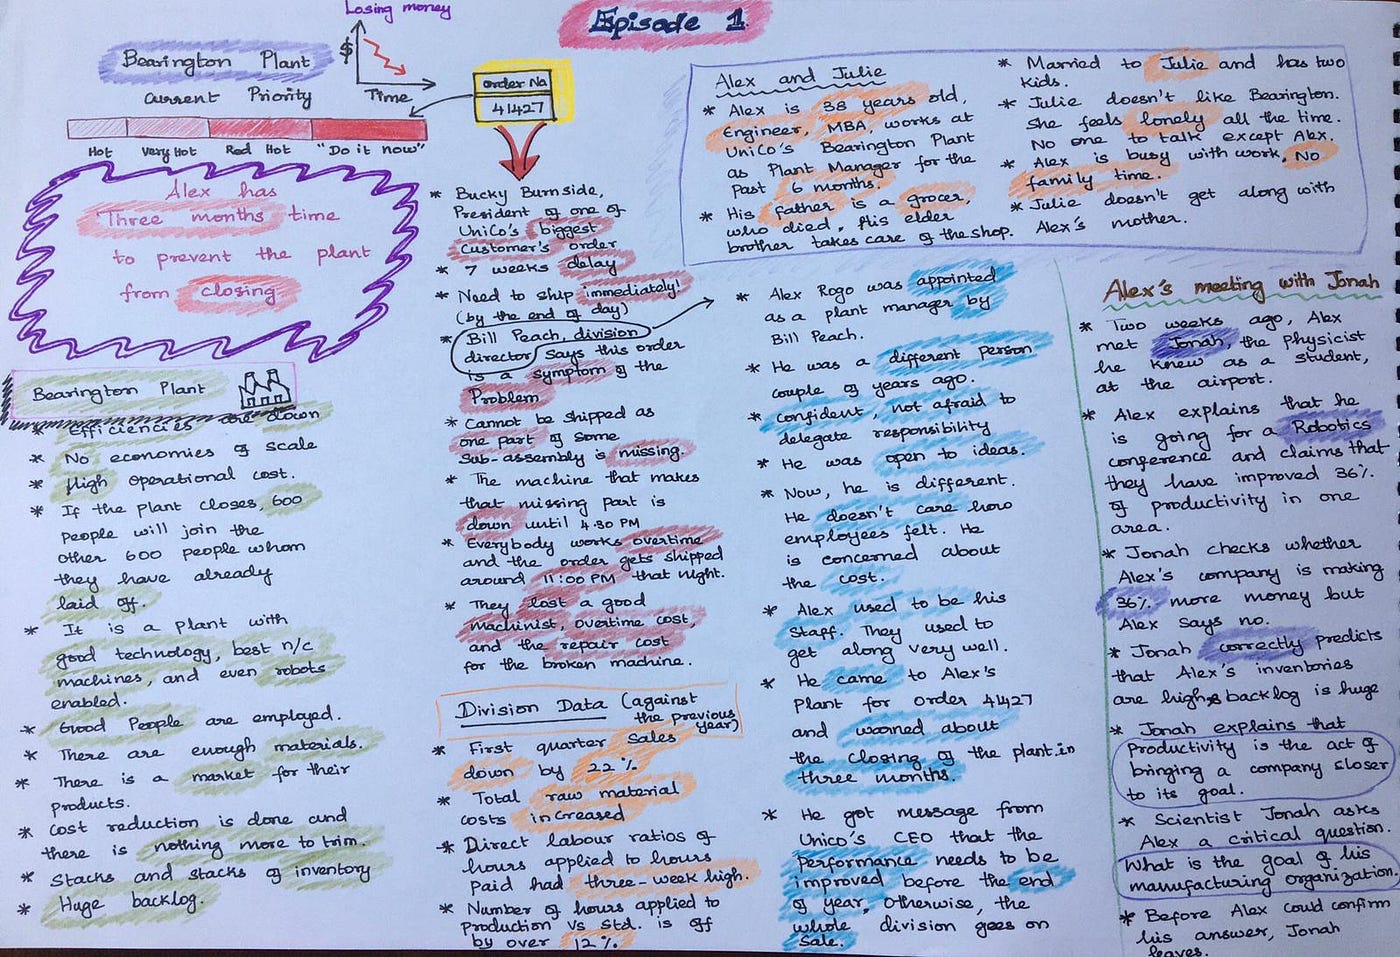 Episode 1
Losing money
$
Time
Bearington Plant
Current Priority
Hot
Very Hot
Red Hot
"Do it now"
order No
41427
Alex has
Three months time
to prevent the plant
from closing
Bearington Plant
* Efficiencies are down
* No economies of scale
* High operational cost.
* If the plant closes, 600
people will join the
other 600 people whom
they have already
laid off.
* It is a plant with
good technology, best n/c
machines, and even robots
enabled.
* Good People are employed.
* There are enough materials.
* There is a market for their
products.
* Cost reduction is done and
there is nothing more to trim.
* Stacks and stacks of inventory
* Huge backlog.
* Bucky Burnside,
President of one of
UniCo's biggest
Customer's order
* 7 weeks delay
* Need to ship immediately!
(by the end of day)
* Bill Peach, division
director, says this order
is a symptom of the
Problem
* Cannot be shipped as
one part of some
Sub-assembly is missing.
* The machine that makes
that missing part is
down until 4.30 PM
* Everybody works overtime
and the order gets shipped
around 11:00 PM that night.
* They lost a good
machinist, overtime cost,
and the repair cost
for the broken machine.
Division Data (against
the previous
year)
* First quarter sales
down by 22%
* Total raw material
costs increased
* Direct labour ratios of
hours applied to hours
Paid had three-week high.
* Number of hours applied to
production vs std. is off
by over 12%.
Alex and Julie
* Alex is 38 years old,
Engineer, MBA, works at
UniCo's Bearington Plant
as Plant Manager for the
Past 6 months.
* His father is a grocer,
who died. His elder
brother takes care of the shop.
* Married to Julie and has two
kids.
* Julie doesn't like Bearington.
She feels lonely all the time.
No one to talk except Alex.
* Alex is busy with work, No
family time.
* Julie doesn't get along with
Alex's mother.
* Alex Rogo was appointed
as a plant manager by
Bill Peach.
* He was a different person
couple of years ago.
* Confident, not afraid to
delegate responsibility
* He was open to ideas.
* Now, he is different.
He doesn't care how
employees felt. He
is concerned about
the cost.
* Alex used to be his
Staff. They used to
get along very well.
* He came to Alex's
Plant for order 41427
and warned about
the closing of the plant in
three months.
* He got message from
Unico's CEO that the
Performance needs to be
improved before the end
of year, Otherwise, the
whole division goes on
Sale.
Alex's meeting with Jonah
* Two weeks ago, Alex
met Jonah, the physicist
he knew as a student,
at the airport.
* Alex explains that he
is going for a Robotics
conference and claims that
they have improved 36%
of productivity in one
area.
* Jonah checks whether
Alex's company is making
36% more money but
Alex says no.
* Jonah correctly predicts
that Alex's inventories
are high & backlog is huge
* Jonah explains that
Productivity is the act of
bringing a company closer
to its goal.
* Scientist Jonah asks
Alex a critical question.
What is the goal of his
manufacturing organization.
* Before Alex could confirm
his answer, Jonah
leaves.